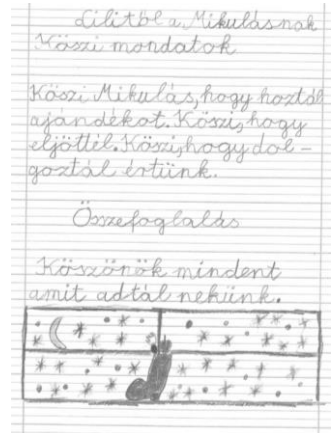 Lilitől a Mikulásnak
Köszi mondatok
Köszi Mikulás, hogy hoztál
ajándékot. Köszi, hogy
eljöttél. Köszi, hogy dol-
goztál értünk.
Összefoglalás
Köszönök mindent
amit adtál nekünk.